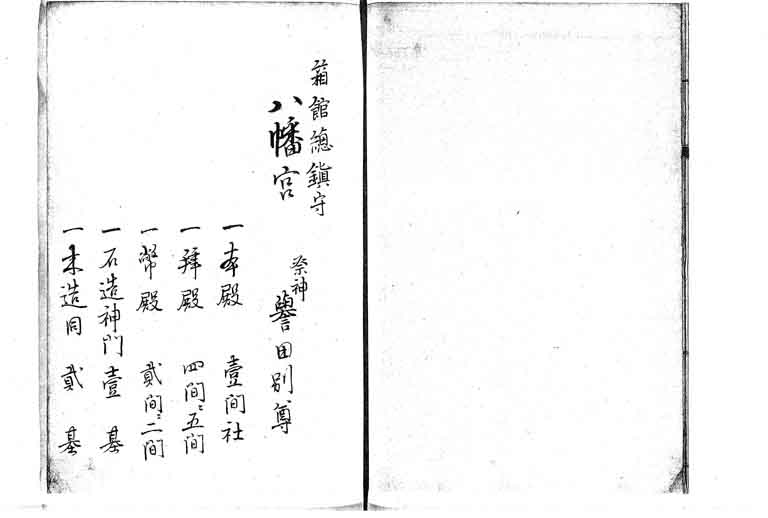 箱館總鎮守
八幡宮
祭神
譽田別尊
一本殿 壹間社
一拜殿 四間ニ五間
一幣殿 貳間ニ二間
一石造神門壹基
一木造同 貳基